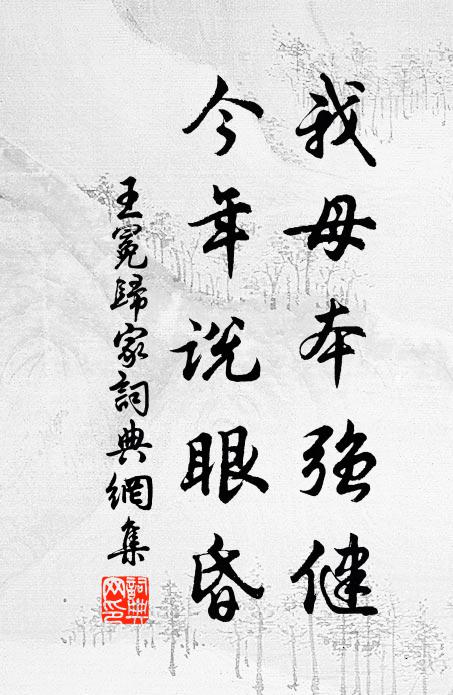 我母本強健
今年說眼昏
王冕歸家詞典網集
詞典網印